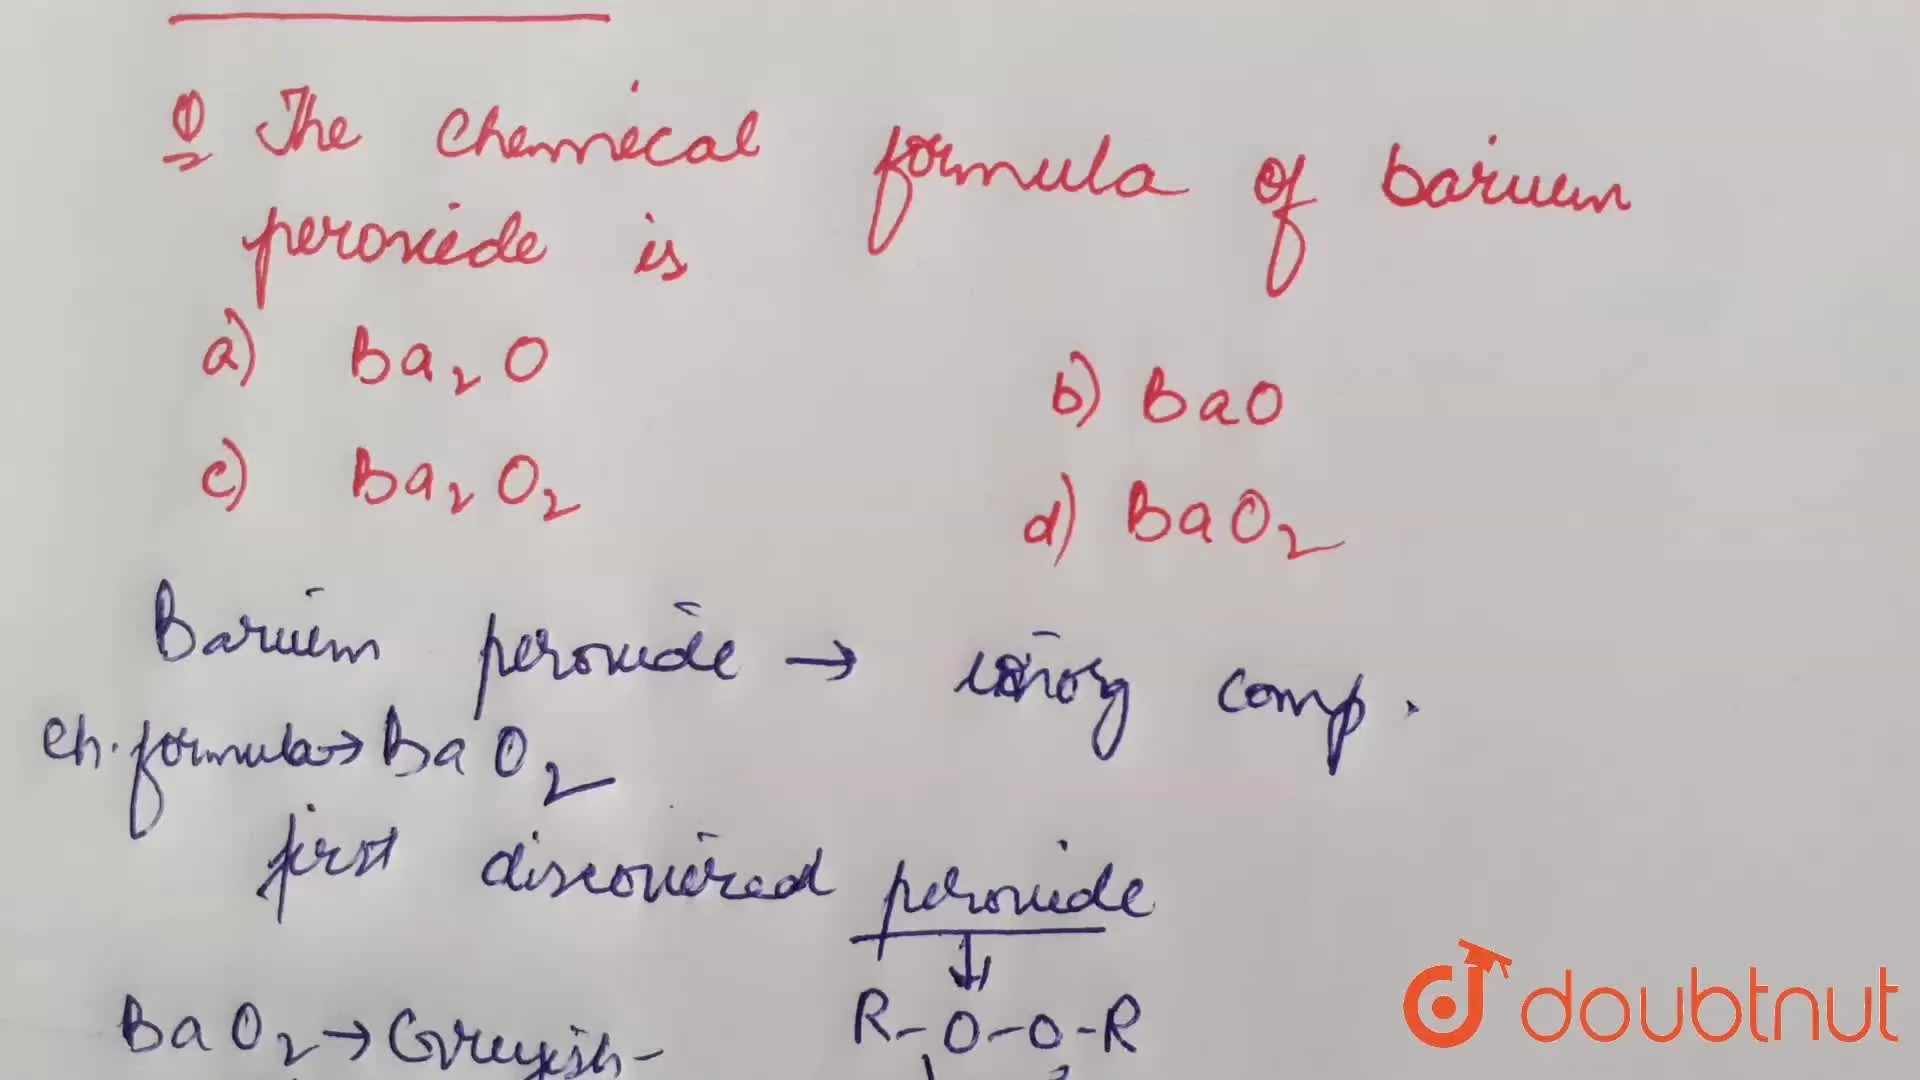 Q The Chemical formula of barium
peroxide is
a) Ba₂O
b) BaO
c) Ba₂O₂
d) BaO₂
Barium peroxide → inorg comp.
Ch. formula → BaO₂
first discovered peroxide
R-O-O-R
BaO₂ → Greyish-
doubtnut